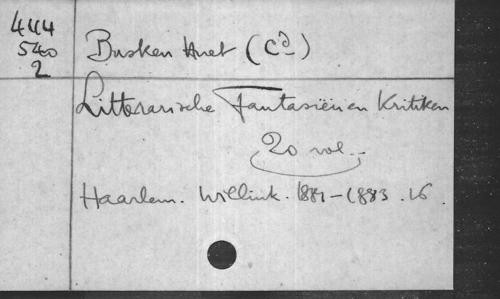 444
540
2
Busken Huet (Cd)
Litterarische Fantasiën en Kritiken
20 vol.
Haarlem. Willink. 1881-1883. 16.